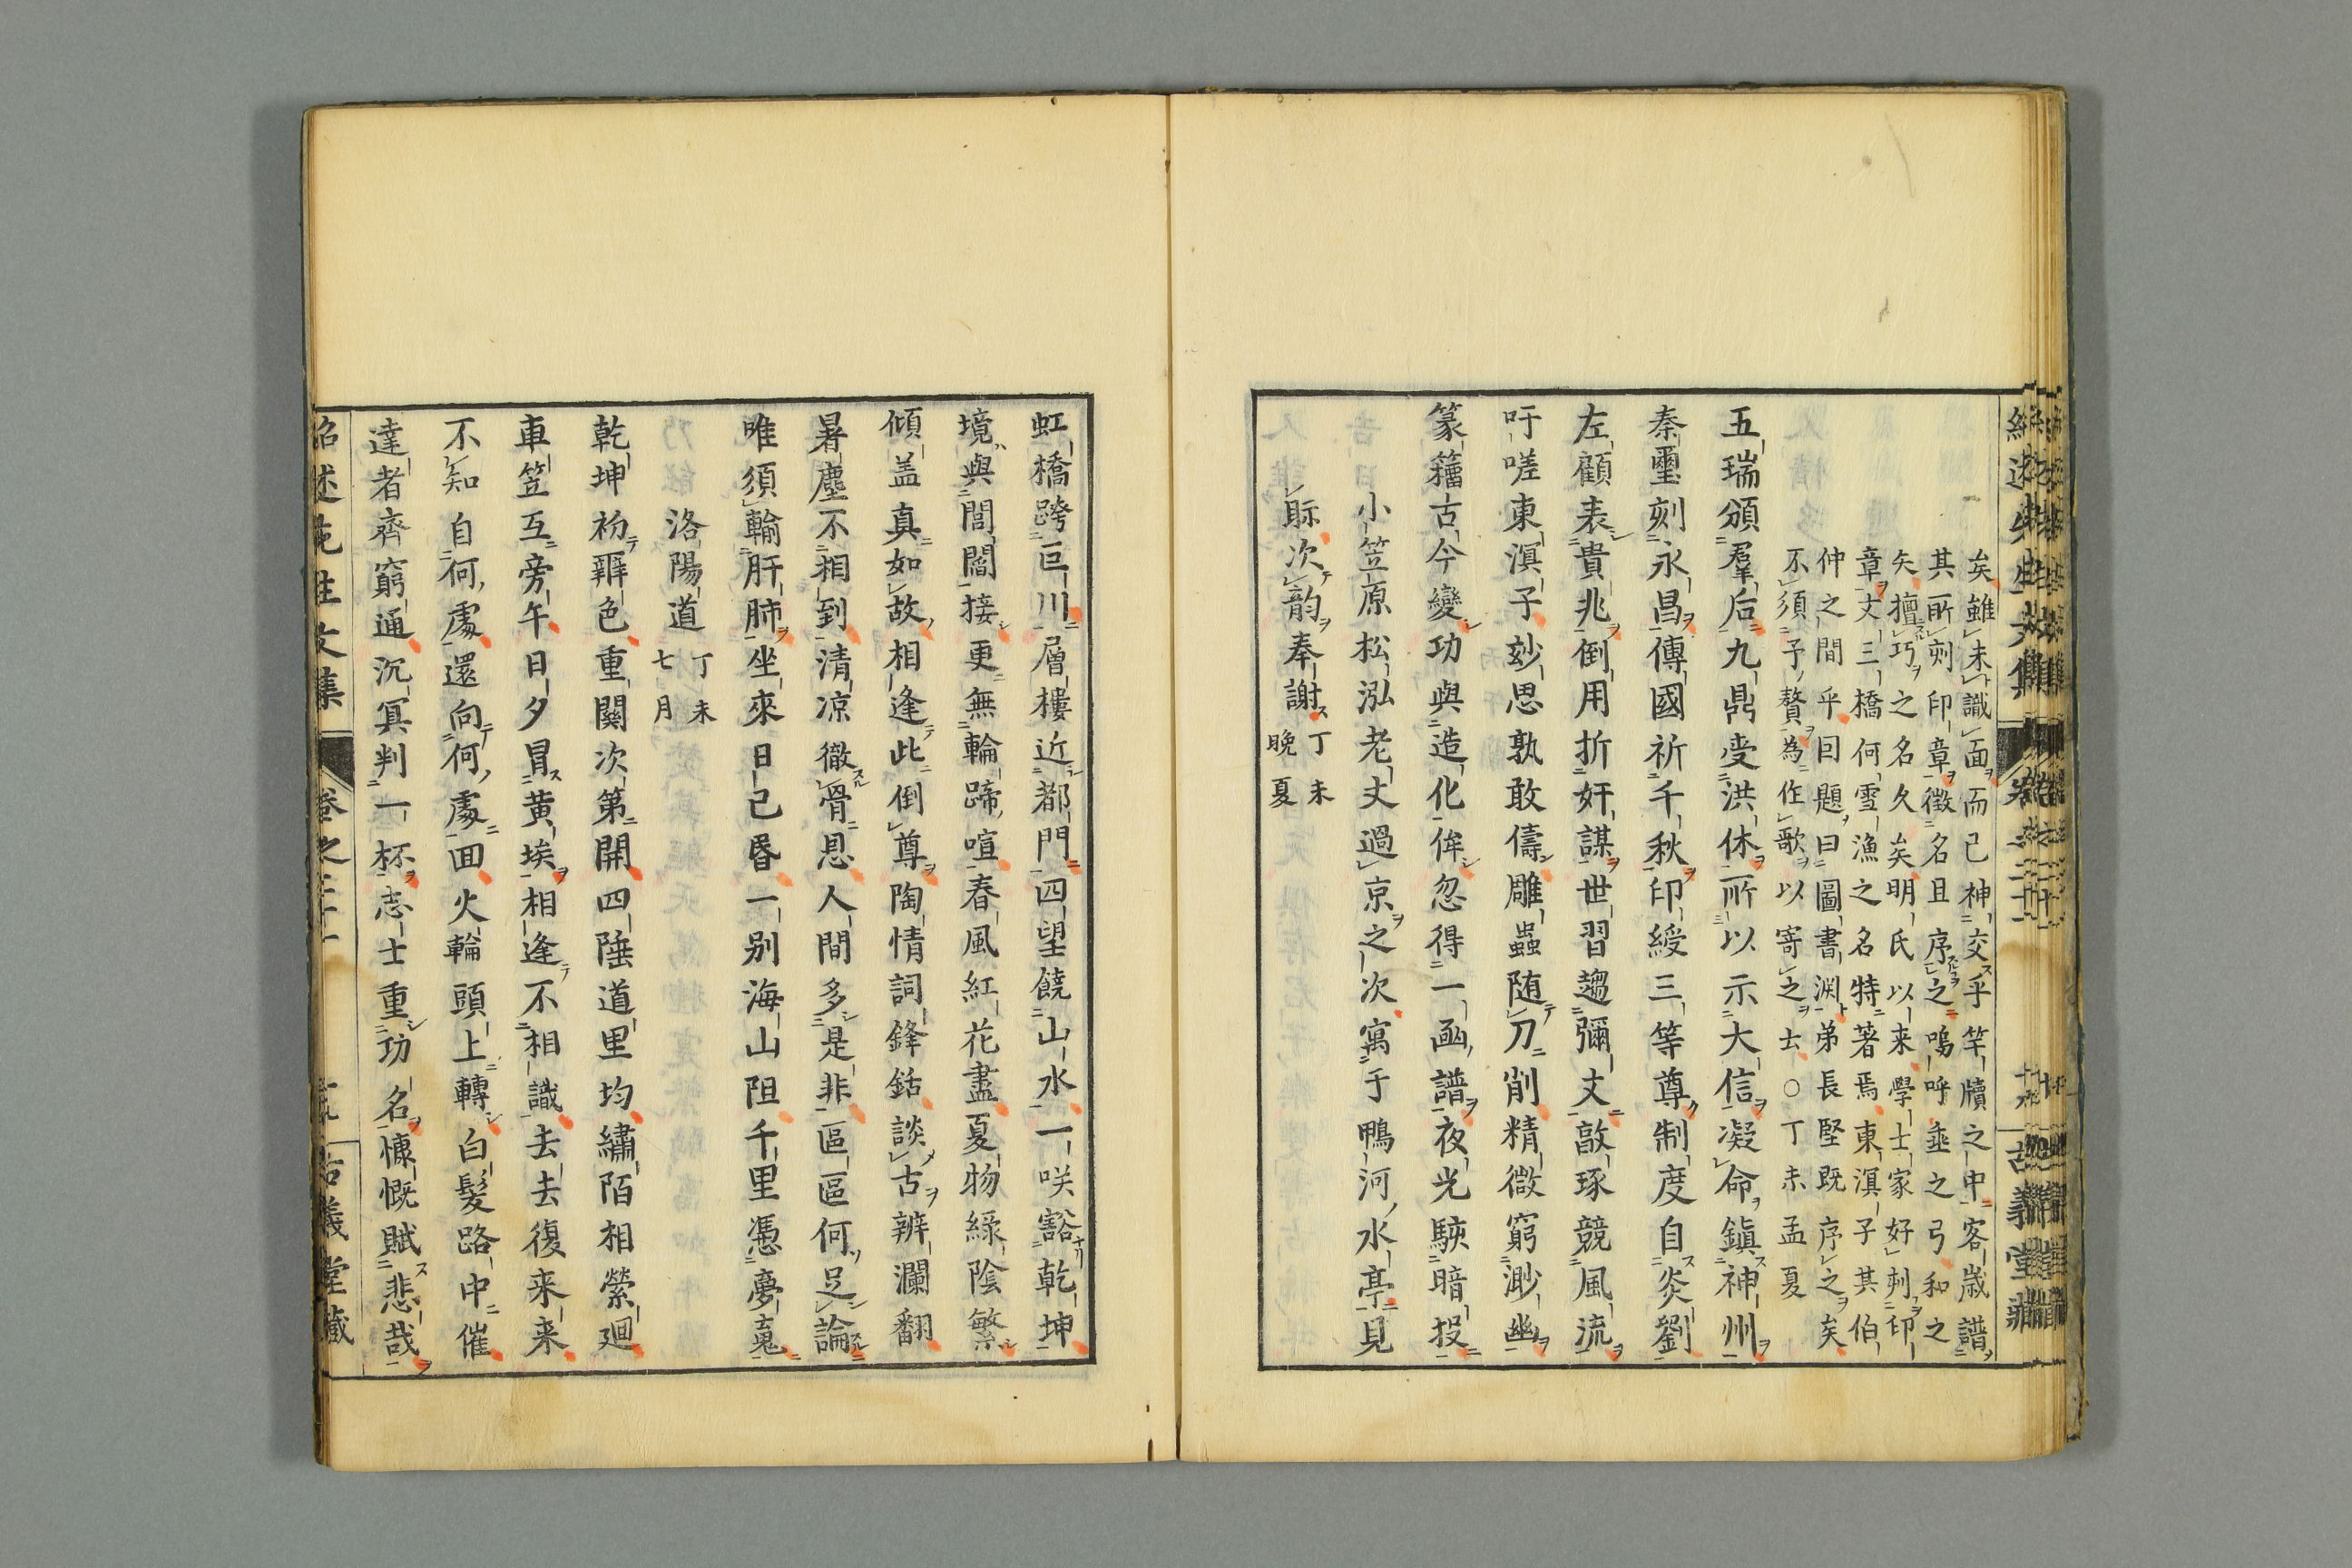 矣雖未識面而已神交乎竿牘之中客歳譜
其所刻印章徵名且序之嗚呼垂之弓和之
矢擅巧之名久矣明氏以来學士家好刻印
章丈三橋何雪漁之名特著焉東溟子其伯
仲之間乎因題曰圖書淵弟長堅既序之矣
不須予贅為作歌以寄之士○丁未孟夏
五瑞頒羣后九鼎受洪休所以示大信凝命鎮神州
秦璽刻永昌傳國祈千秋印綬三等尊制度自炎劉
左顧表貴兆倒用折奸謀世習趨彌丈敲琢競風流
吁嗟東溟子妙思孰敢儔雕蟲随刀削精微窮渺幽
篆籀古今變功與造化侔忽得一函譜夜光駭暗投
小笠原松泓老丈過京之次寓于鴨河水亭見
眎次韵奉謝丁未晩夏
虹橋跨巨川層樓近都門四望饒山水一咲豁乾坤
境與閭閻接更無輪蹄喧春風紅花盡夏物綠陰繁
傾盖真如故相逢此倒尊陶情詞鋒銛談古辨瀾翻
暑塵不相到清凉徹骨思人間多是非區區何足論
唯須輸肝肺坐來日已昏一别海山阻千里憑夢䰟
洛陽道丁未七月
乾坤初辨色重關次第開四陲道里均繡陌相縈廻
車笠互旁午日夕冒黄埃相逢不相識去去復来来
不知自何處還向何處回火輪頭上轉白髮路中催
達者齊窮通沉冥判一杯志士重功名慷慨賦悲哉
紹述先生文集 卷之二十一 古義堂藏